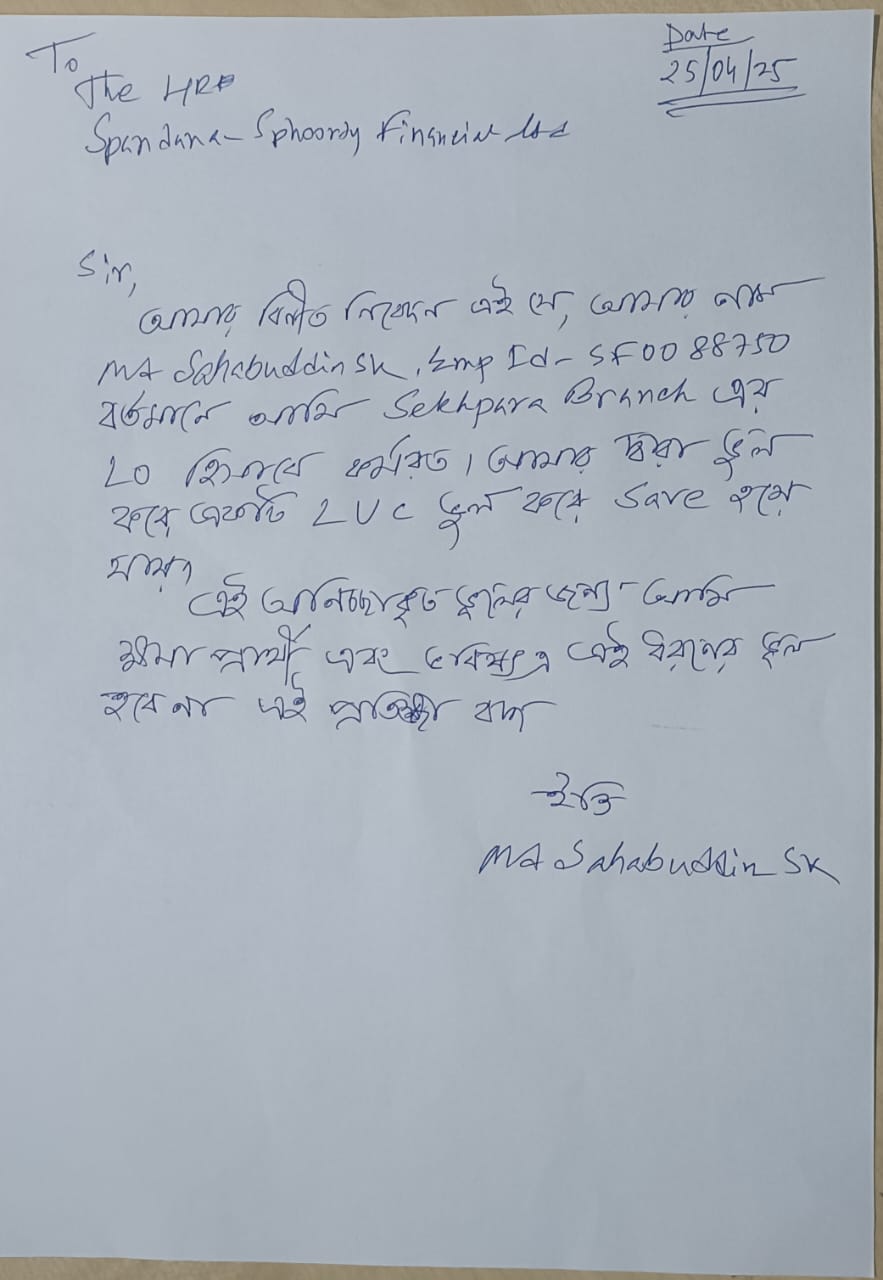 To
Date
25/04/25
The HR
Spandana Sphoorty Financial Ltd
Sir,
আমার বিনীত নিবেদন এই যে, আমার নাম
MD Sahabuddin SK, Emp Id - SF0088750
বর্তমানে আমি Sekhpara Branch এর
LO হিসাবে কর্মরত। আমার দ্বারা ভুল
করে একটি LUC ভুল করে Save হয়ে
যায়।
এই অনিচ্ছাকৃত ভুলের জন্য আমি
ক্ষমা প্রার্থী এবং ভবিষ্যৎ এ এই ধরনের ভুল
হবে না এই প্রতিজ্ঞা বদ্ধ
ইতি
MD Sahabuddin SK